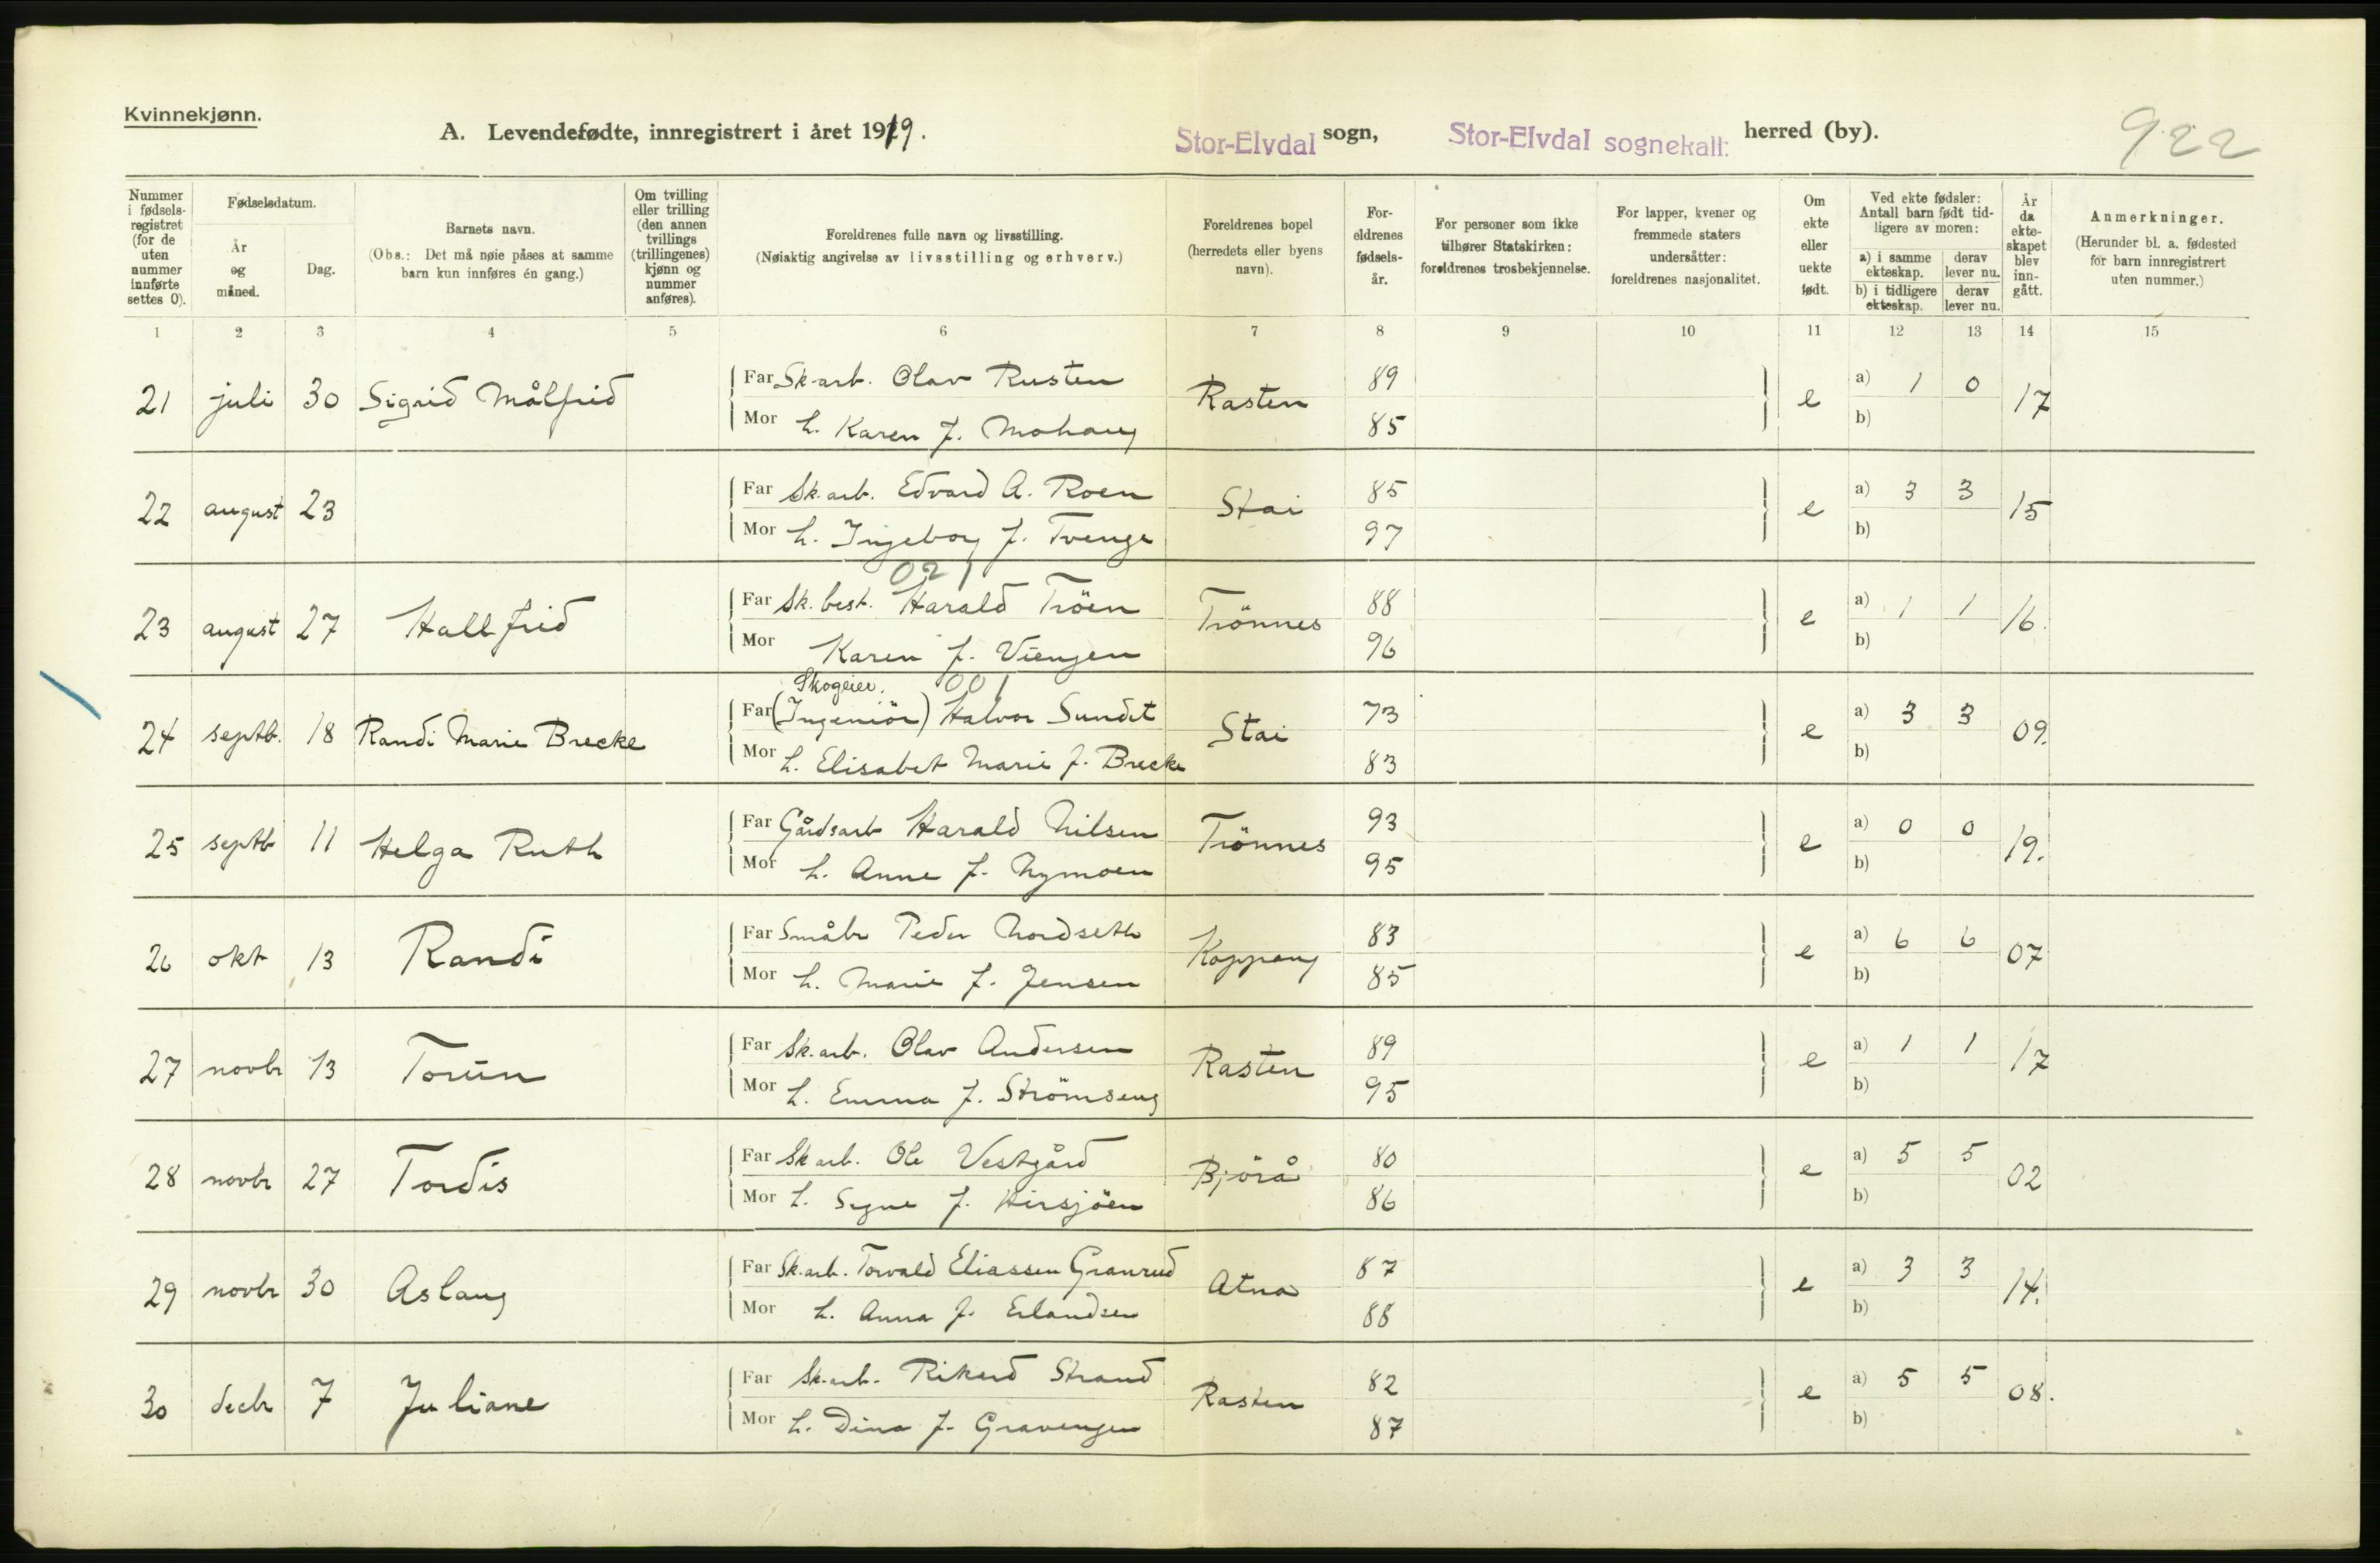 Kvinnekjønn.
A. Levendefødte, innregistrert i året 1919.
Stor-Elvdal sogn, Stor-Elvdal sognekall: herred (by).
922
Nummer i fødselsregistret (for de uten nummer innførte settes 0).
Fødselsdatum.
År og måned.
Dag.
Barnets navn.
(Obs.: Det må nøie påses at samme barn kun innføres én gang.)
Om tvilling eller trilling (den annen tvillings (trillingenes) kjønn og nummer anføres).
Foreldrenes fulle navn og livsstilling.
(Nøiaktig angivelse av livsstilling og erhverv.)
Foreldrenes bopel (herredets eller byens navn).
Foreldrenes fødselsår.
For personer som ikke tilhører Statskirken: foreldrenes trosbekjennelse.
For lapper, kvener og fremmede staters undersåtter: foreldrenes nasjonalitet.
Om ekte eller uekte født.
Ved ekte fødsler: Antall barn født tidligere av moren:
a) i samme ekteskap. derav lever nu.
b) i tidligere ekteskap. derav lever nu.
År da ekteskapet blev inngått.
Anmerkninger.
(Herunder bl. a. fødested for barn innregistrert uten nummer.)
1 2 3 4 5 6 7 8 9 10 11 12 13 14 15
21 juli 30 Sigrid Målfrid Far Sk.arb. Olav Rusten Rasten 89 e a) 1 0 17
Mor h. Karen f. Mohaug 85 b)
22 august 23 Far Sk.arb. Edvard A. Roen Stai 85 e a) 3 3 15
Mor h. Ingeborg f. Tvenge 97 b)
021
23 august 27 Hallfrid Far Sk. best. Harald Tröen Trönnes 88 e a) 1 1 16.
Mor Karen f. Viengen 96 b)
Skogeier. 001
24 septb. 18 Randi Marie Brecke Far (Ingeniör) Halvor Sundet Stai 73 e a) 3 3 09.
Mor h. Elisabet Marie f. Brecke 83 b)
25 septb 11 Helga Ruth Far Gårdsarb Harald Nilsen Trönnes 93 e a) 0 0 19.
Mor h. Anne f. Nymoen 95 b)
26 okt 13 Randi Far Småbr Peder Nordseth Koppang 83 e a) 6 6 07
Mor h. Marie f. Jensen 85 b)
27 novbr 13 Torun Far Sk.arb. Olav Andersen Rasten 89 e a) 1 1 17
Mor h. Emma f. Strömseng 95 b)
28 novbr 27 Tordis Far Sk arb. Ole Vestgård Björa 80 e a) 5 5 02
Mor h. Signe f. Hirsjöen 86 b)
29 novbr 30 Aslaug Far Sk.arb. Torvald Eliassen Granrud Atna 87 e a) 3 3 14.
Mor h. Anna f. Erlandsen 88 b)
30 decbr 7 Juliane Far Sk.arb. Rikard Strand Rasten 82 e a) 5 5 08.
Mor h. Dina f. Gravengen 87 b)